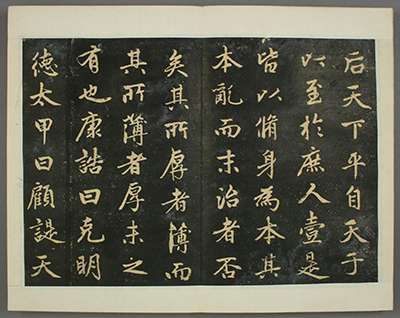 后天下平自天子
以至於庶人壹是
皆以脩身為本其
本亂而末治者否
矣其所厚者薄而
其所薄者厚未之
有也康誥曰克明
德太甲曰顧諟天